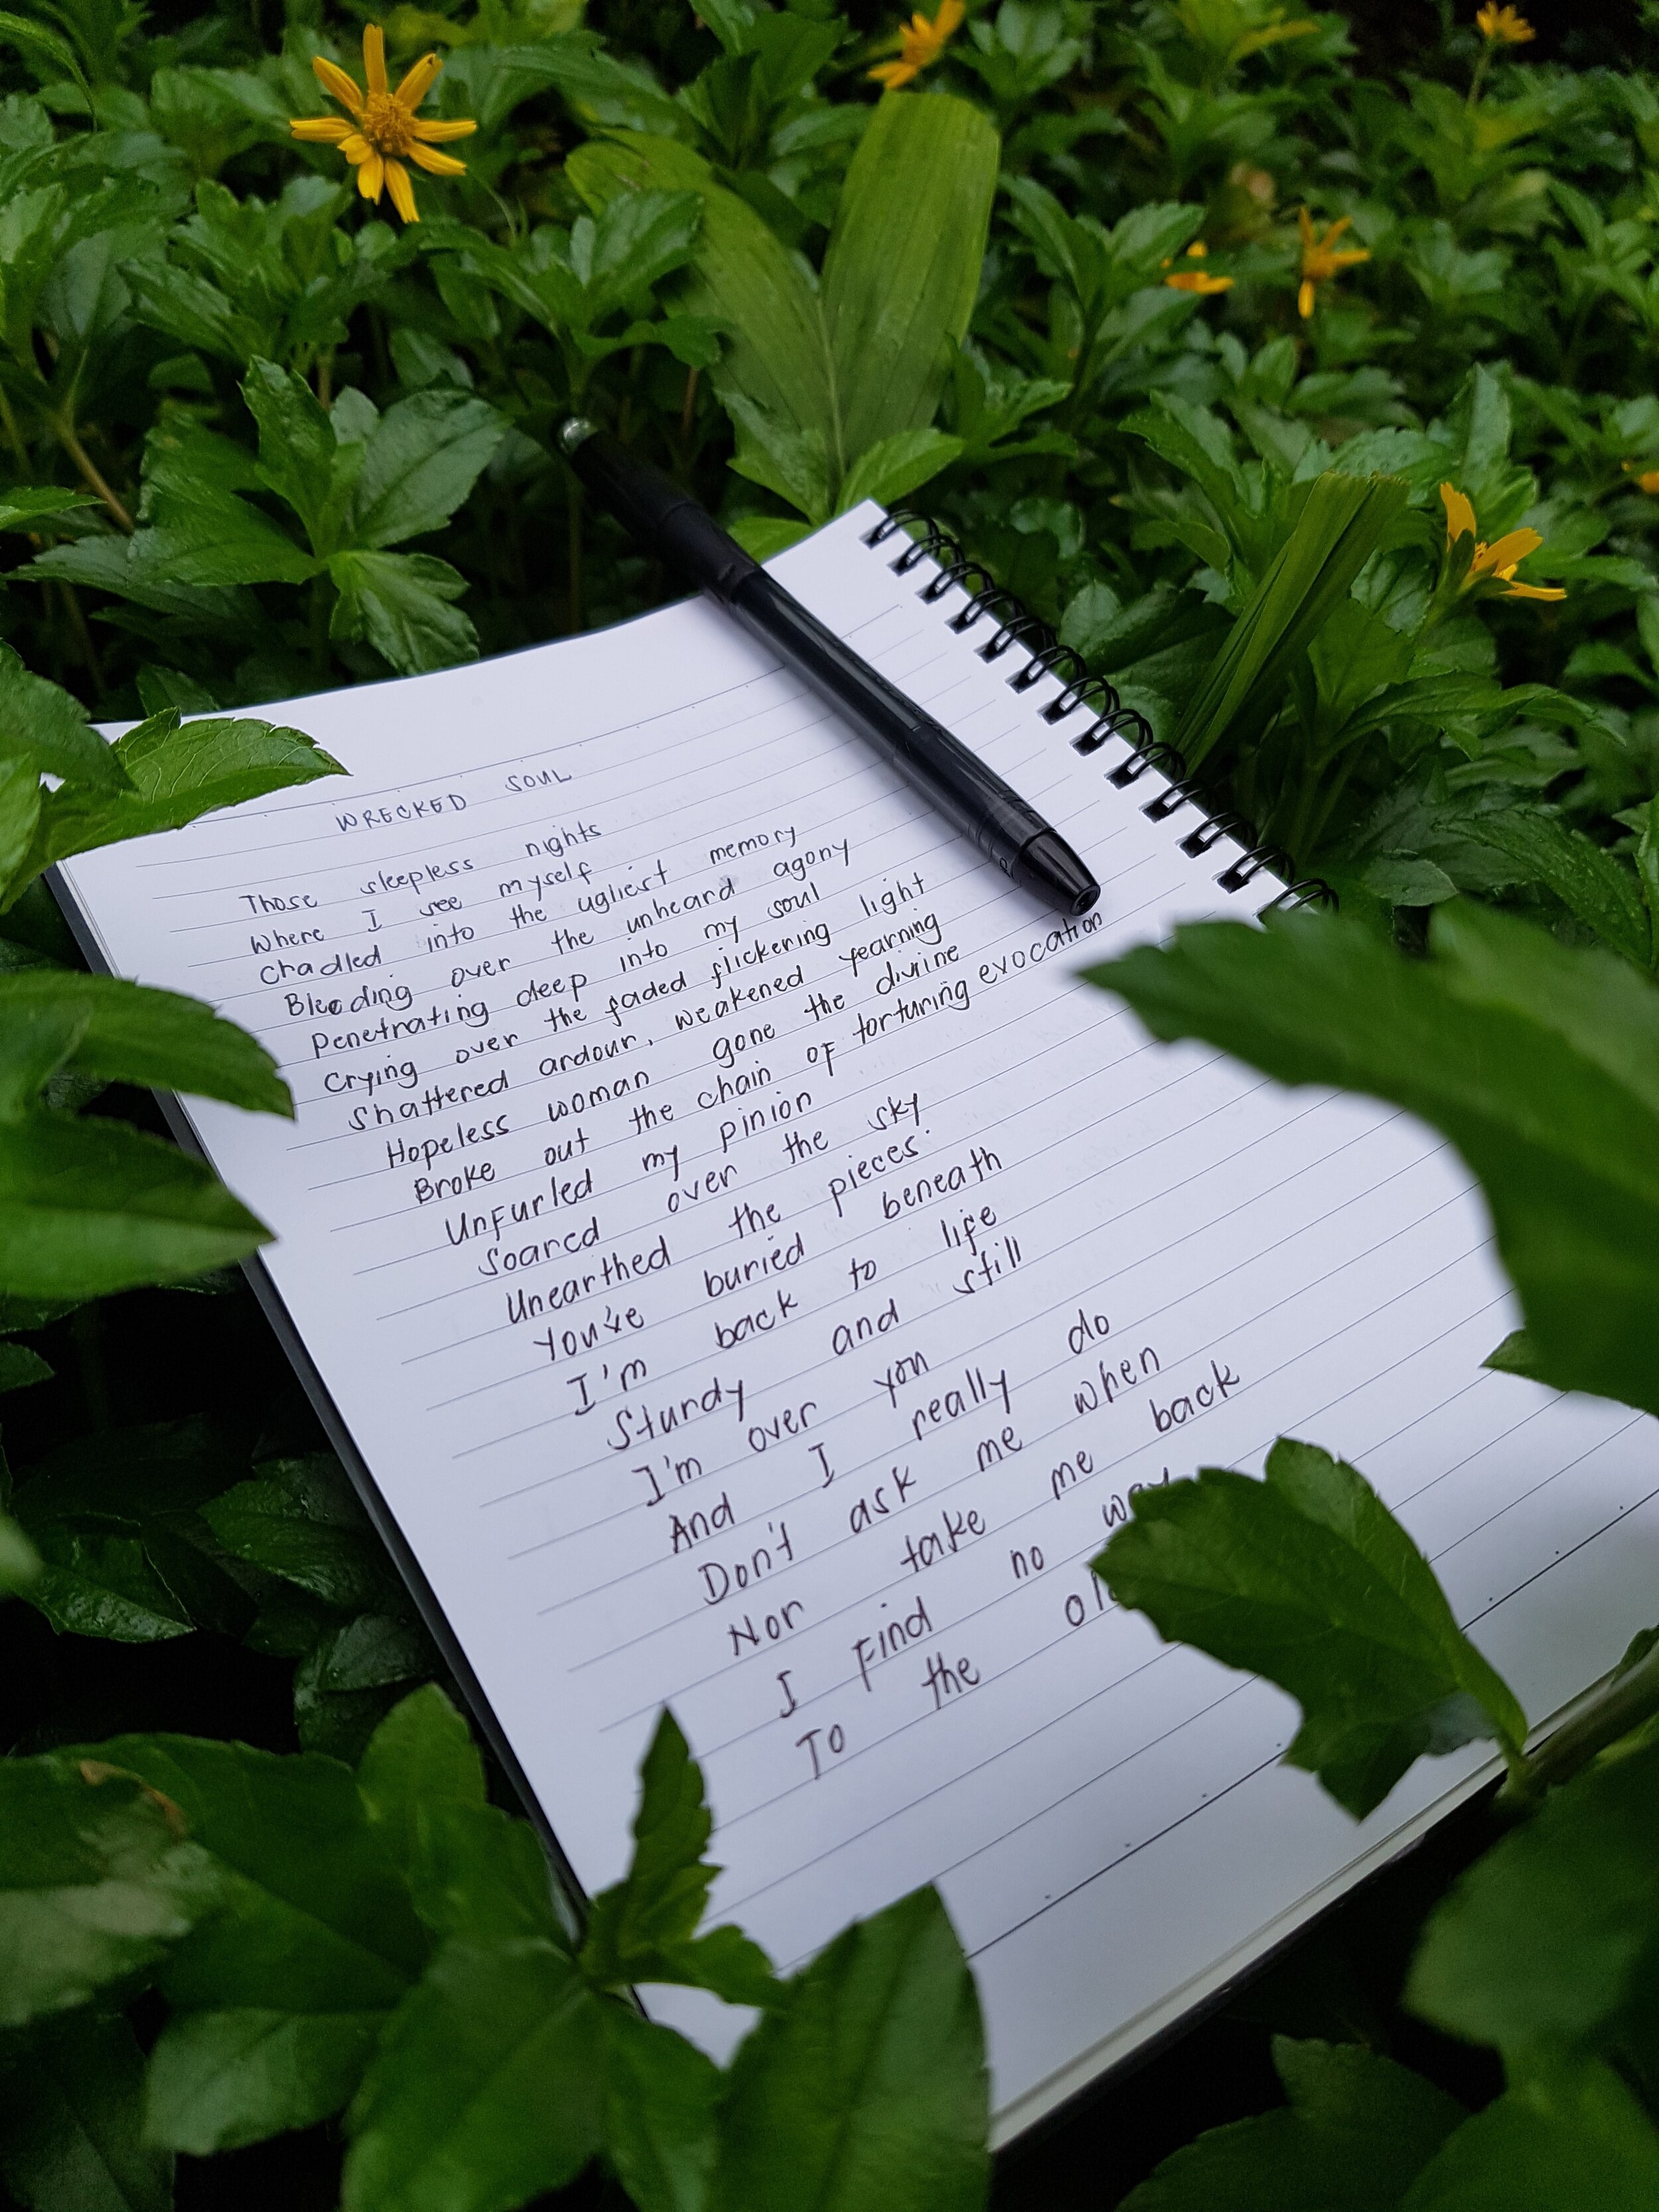 WRECKED SOUL
Those sleepless nights
Where I see myself
Cradled into the ugliest memory
Bleeding over the unheard agony
Penetrating deep into my soul
Crying over the faded flickering light
Shattered ardour, weakened yearning
Hopeless woman gone the divine
Broke out the chain of torturing evocation
Unfurled my pinion
Soared over the sky
Unearthed the pieces.
You've buried beneath
I'm back to life
Sturdy and still
I'm over you
And I really do
Don't ask me when
Nor take me back
I find no way
To the